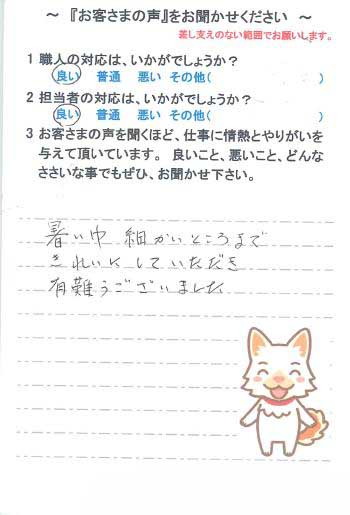 ～ 『お客さまの声』をお聞かせください ～
差し支えのない範囲でお願いします。
1 職人の対応は、いかがでしょうか？
良い 普通 悪い その他( )
2 担当者の対応は、いかがでしょうか？
良い 普通 悪い その他( )
3 お客さまの声を聞くほど、仕事に情熱とやりがいを
与えて頂いています。 良いこと、悪いこと、どんな
ささいな事でもぜひ、お聞かせ下さい。
暑い中 細かいところまで
きれいにしていただき
有難うございました